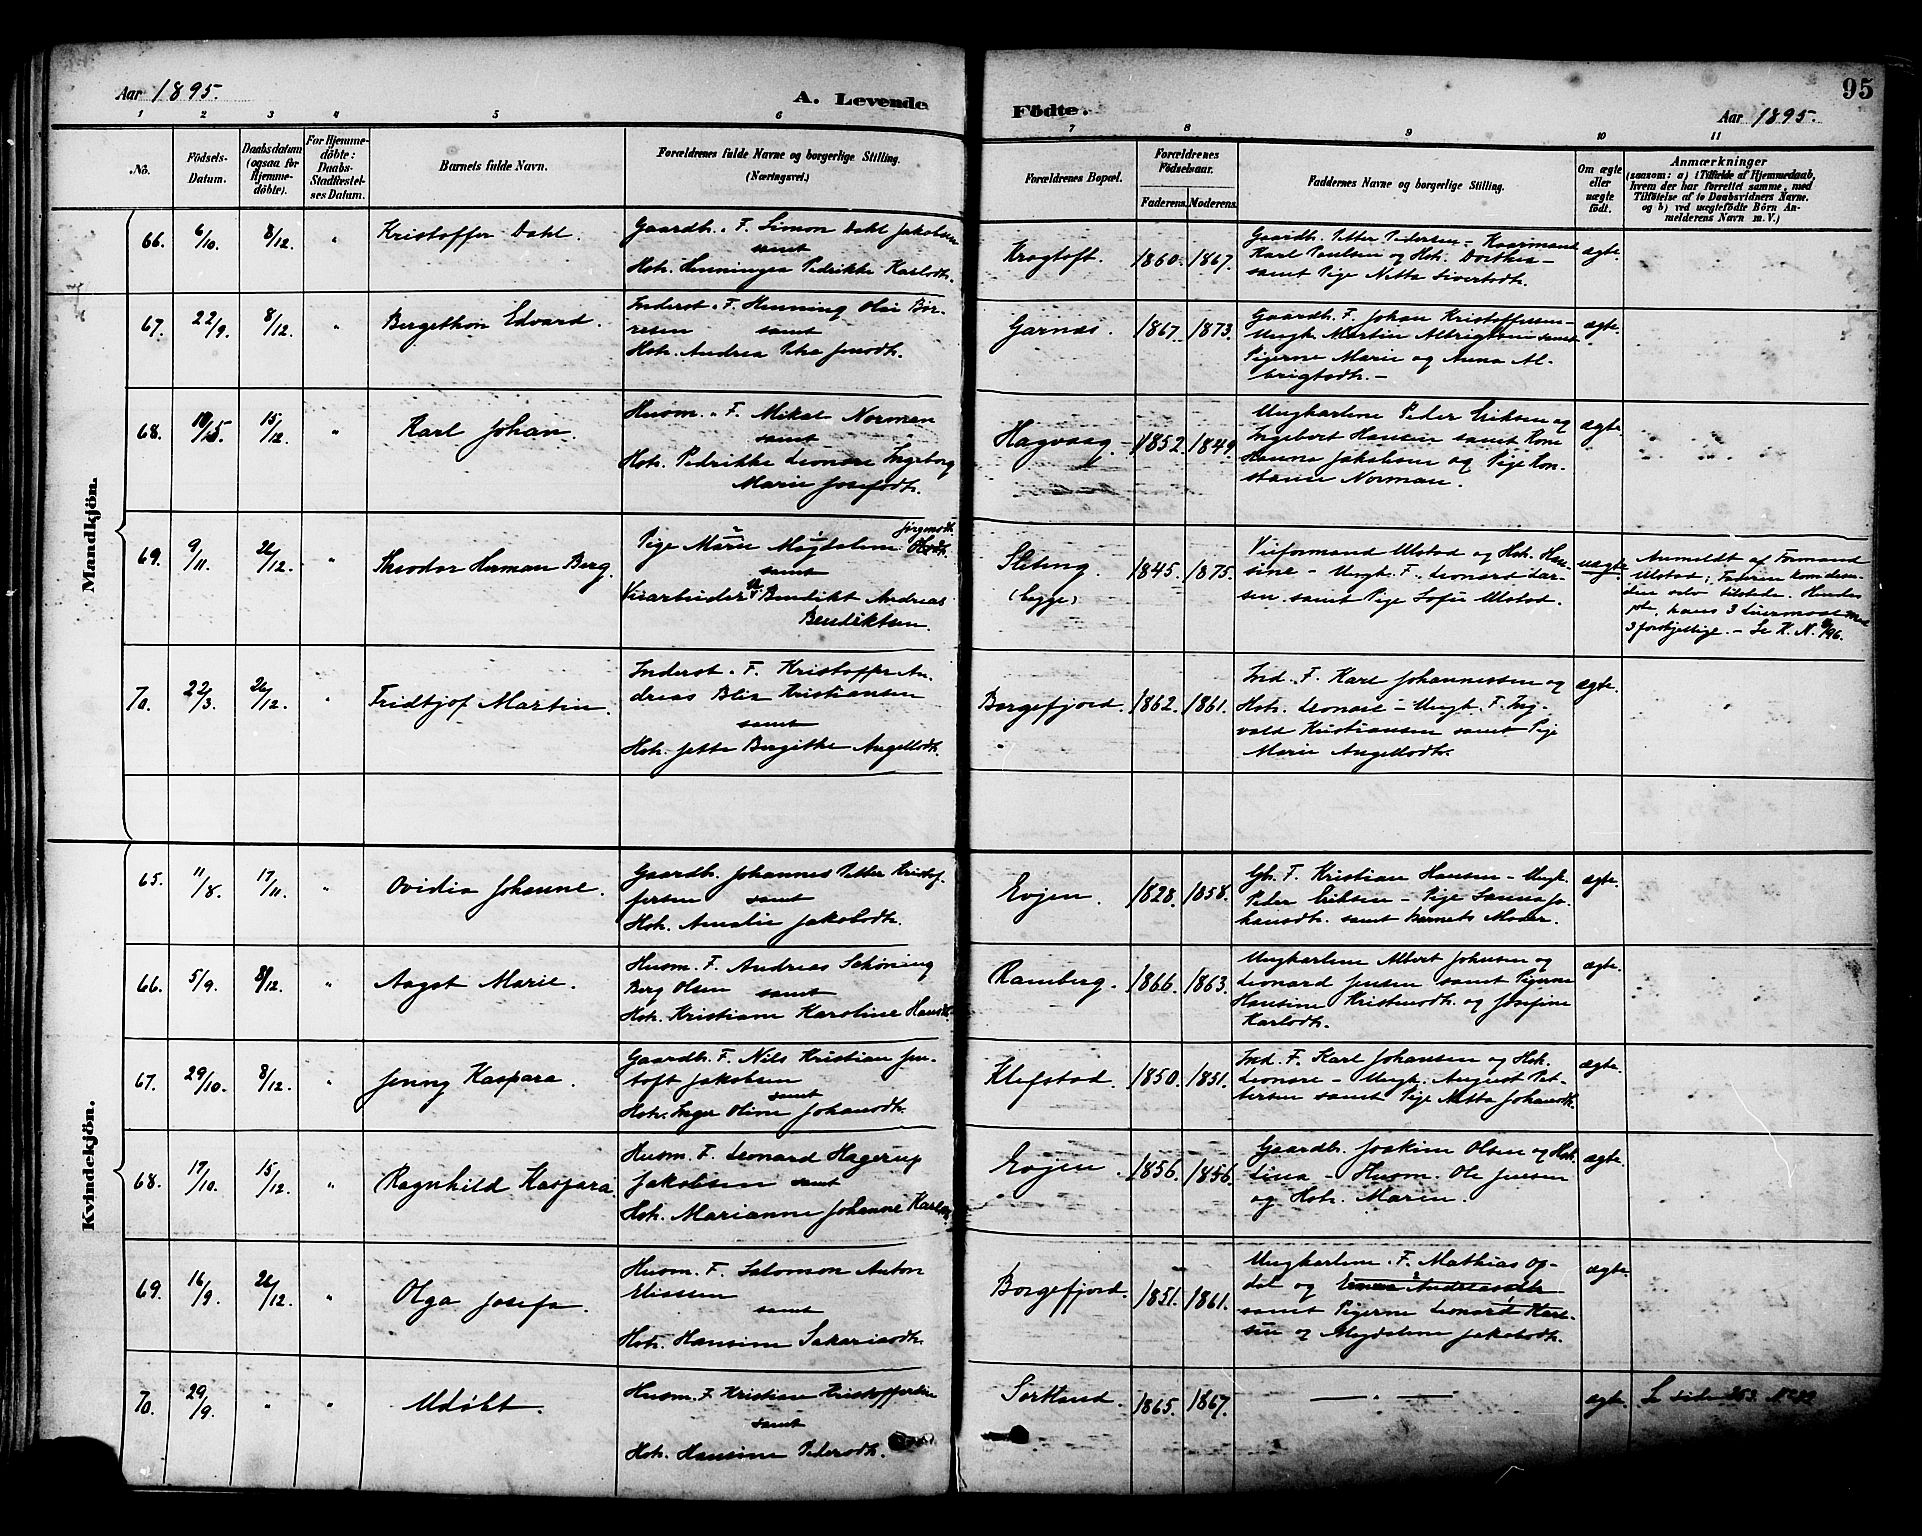 Aar 1895.
A. Levende
Födte.
95
Aar 1895.
1 2 3 4 5 6 7 8 9 10 11
No.
Födsels-Datum.
Daabsdatum (ogsaa for Hjemmedöbte).
For Hjemmedöbte: Daabs-Stadfæstelses Datum.
Barnets fulde Navn.
Forældrenes fulde Navne og borgerlige Stilling. (Næringsvei.)
Forældrenes Bopæl.
Forældrenes Födselsaar.
Faderens. Moderens.
Faddernes Navne og borgerlige Stilling.
Om ægte eller uægte födt.
Anmærkninger
(saasom: a) i Tilfælde af Hjemmedaab, hvem der har forrettet samme, med Tilföielse af to Daabsvidners Navne. og b) ved uægtefödte Börn Anmelderens Navn m. V.)
Mandkjön.
66. 6/10. 8/12. " Kristoffer Dahl.
Gaardb. F. Simon Dahl Jakobsen
samt
Hstr. Henningea Pedrikke Karlsdtr.
Kragtoft. 1860. 1867.
Gaardb. Petter Pedersen - Kaarmand
Karl Paulsen og Hstr. Dorthea -
samt Pige Netta Sivertsdtr.
ægte.
67. 22/9. 8/12. " Bergethon Edvard.
Inderst. F. Henning Olai Bör-
resen samt
Hstr. Andrea Petra Jensdtr.
Garnæs. 1867. 1873.
Gaardb. F. Johan Kristoffersen -
Ungk. Martin Albrigtsen samt
Pigerne Marie og Anna Al-
brigtsdtr. -
ægte.
68. 15/12. " Karl Johan.
Husm. F. Mikal Norman
samt
Hstr. Pedrikke Leonore Ingeborg
Marie Josefsdtr.
Hagvaag - 1852. 1849.
Ungkarlene Peder Eriksen og
Ingebert Hansen samt Kone
Hanna Jakobsen og Pige Kon-
stance Norman.
ægte.
69. 9/11. 26/12. " Theodor Herman Berg.
Jörgensdtr.
Pige Marie Magdalene
samt
Veiarbeider Benedikt Andreas
Benediktsen.
Sleting. (bygge) 1845. 1875.
Veiformand Ulstad og Hstr. Han-
sine - Ungk. F. Leonard Lar-
sen samt Pige Sofie Ulstad.
uægte.
Anmeldt af Formand
Ulstad; Faderen kom des-
den selv tilstede. Hendes
1ste, hans 3 Leiermaal med
3 forskjellige. - Se K. N. /96.
70. 22/3. 26/12. " Fridtjof Martin.
Inderst. F. Kristoffer An-
dreas Blix Kristiansen
samt
Hstr. Jetta Bergitte Angellsdtr.
Borgefjord. 1862. 1861.
Ind. F. Karl Johannessen og
Hstr. Leonore - Ungk. F. Ing-
vald Kristiansen samt Pige
Marie Angellsdtr.
ægte.
Kvindekjön.
65. 11/8. 17/11. " Ovidia Johanne.
Gaardb. Johannes Petter Kristof-
fersen samt
Hstr. Amalie Jakobsdtr.
Evjen. 1828. 1858.
Gb. F. Kristian Hansen - Ungk.
Peder Eriksen - Pige Sanna Jo-
hansdtr. samt Barnets Moder.
ægte.
66. 5/9. 8/12. " Aagot Marie.
Husm. F. Andreas Schöning
Berg Olsen samt
Hstr. Kristiane Karoline Hansdtr.
Ramberg. 1866. 1863.
Ungkarlene Albert Johnsen og
Leonard Jensen samt Pigerne
Hansine Kristensdtr. og Josefine
Karlsdtr.
ægte.
67. 29/10. 8/12. " Jenny Kaspara.
Gaardb. F. Nils Kristian Jen-
toft Jakobsen
samt
Hstr. Inger Oline Johansdtr.
Klefstad. 1850. 1851.
Ind. F. Karl Johansen og Hstr.
Leonore - Ungk. August Pet-
tersen samt Pige Netta Johansdtr.
ægte.
68. 17/10. 15/12. " Ragnhild Kaspara.
Husm. F. Leonard Hagerup
Jakobsen samt
Hstr. Marianne Johanne Karlsdtr.
Evjen. 1856. 1856.
Gaardb. Joakim Olsen og Hstr.
Lina - Husm. Ole Jensen
og Hstr. Maren.
ægte.
69. 16/9. 26/12. " Olga Josefa.
Husm. F. Salomon Anton
Eliassen
samt
Hstr. Hansine Sakariasdtr.
Borgefjord. 1851. 1861.
Ungkarlene F. Mathias Op-
dal og
samt Pigerne Leonard Karl-
sen og Magdalene Jakobsdtr.
ægte.
70. 29/9. " " Udöbt.
Husm. F. Kristian Kristoffersen
samt
Hstr. Hansine Pedersdtr.
Sortland. 1865. 1867.
— " —
ægte.
Se side 253. No